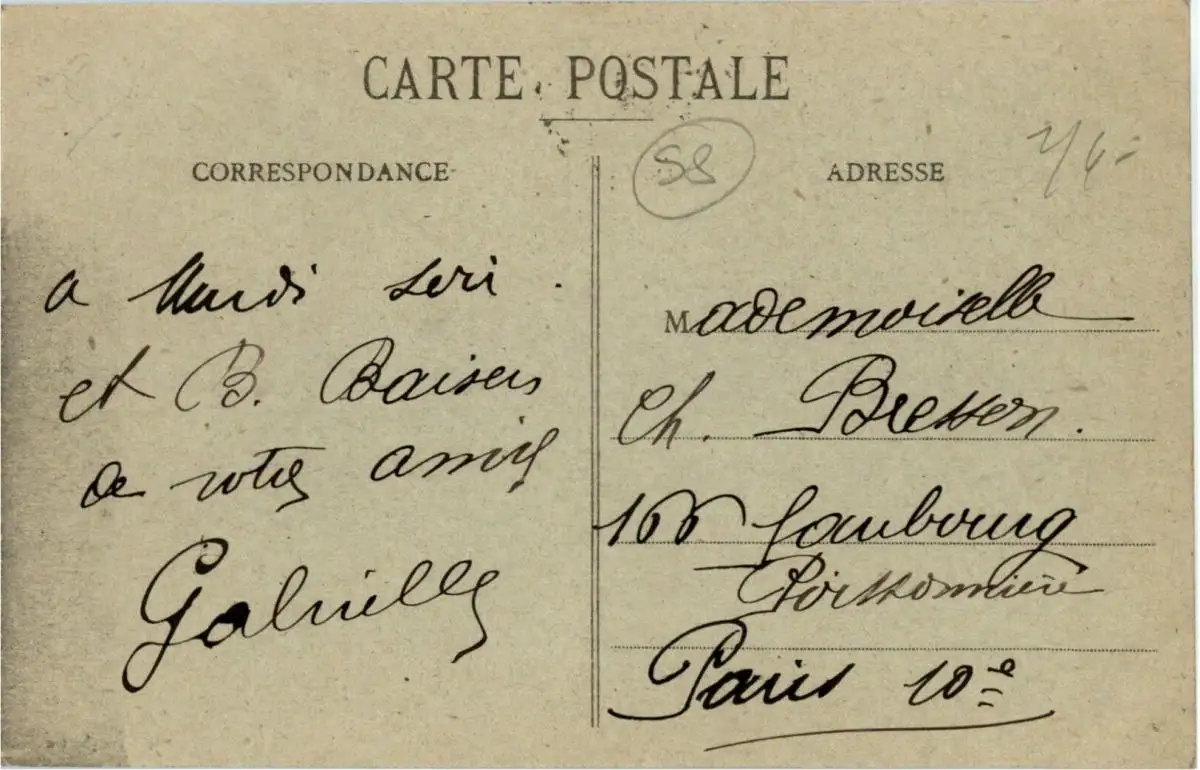 CARTE POSTALE
CORRESPONDANCE
a Mardi soir.
et B. Baisers
de votre amie
Gabrielle
58
ADRESSE
Mademoiselle
Ch. Bresson.
166 faubourg
Poissonnière
Paris 10e